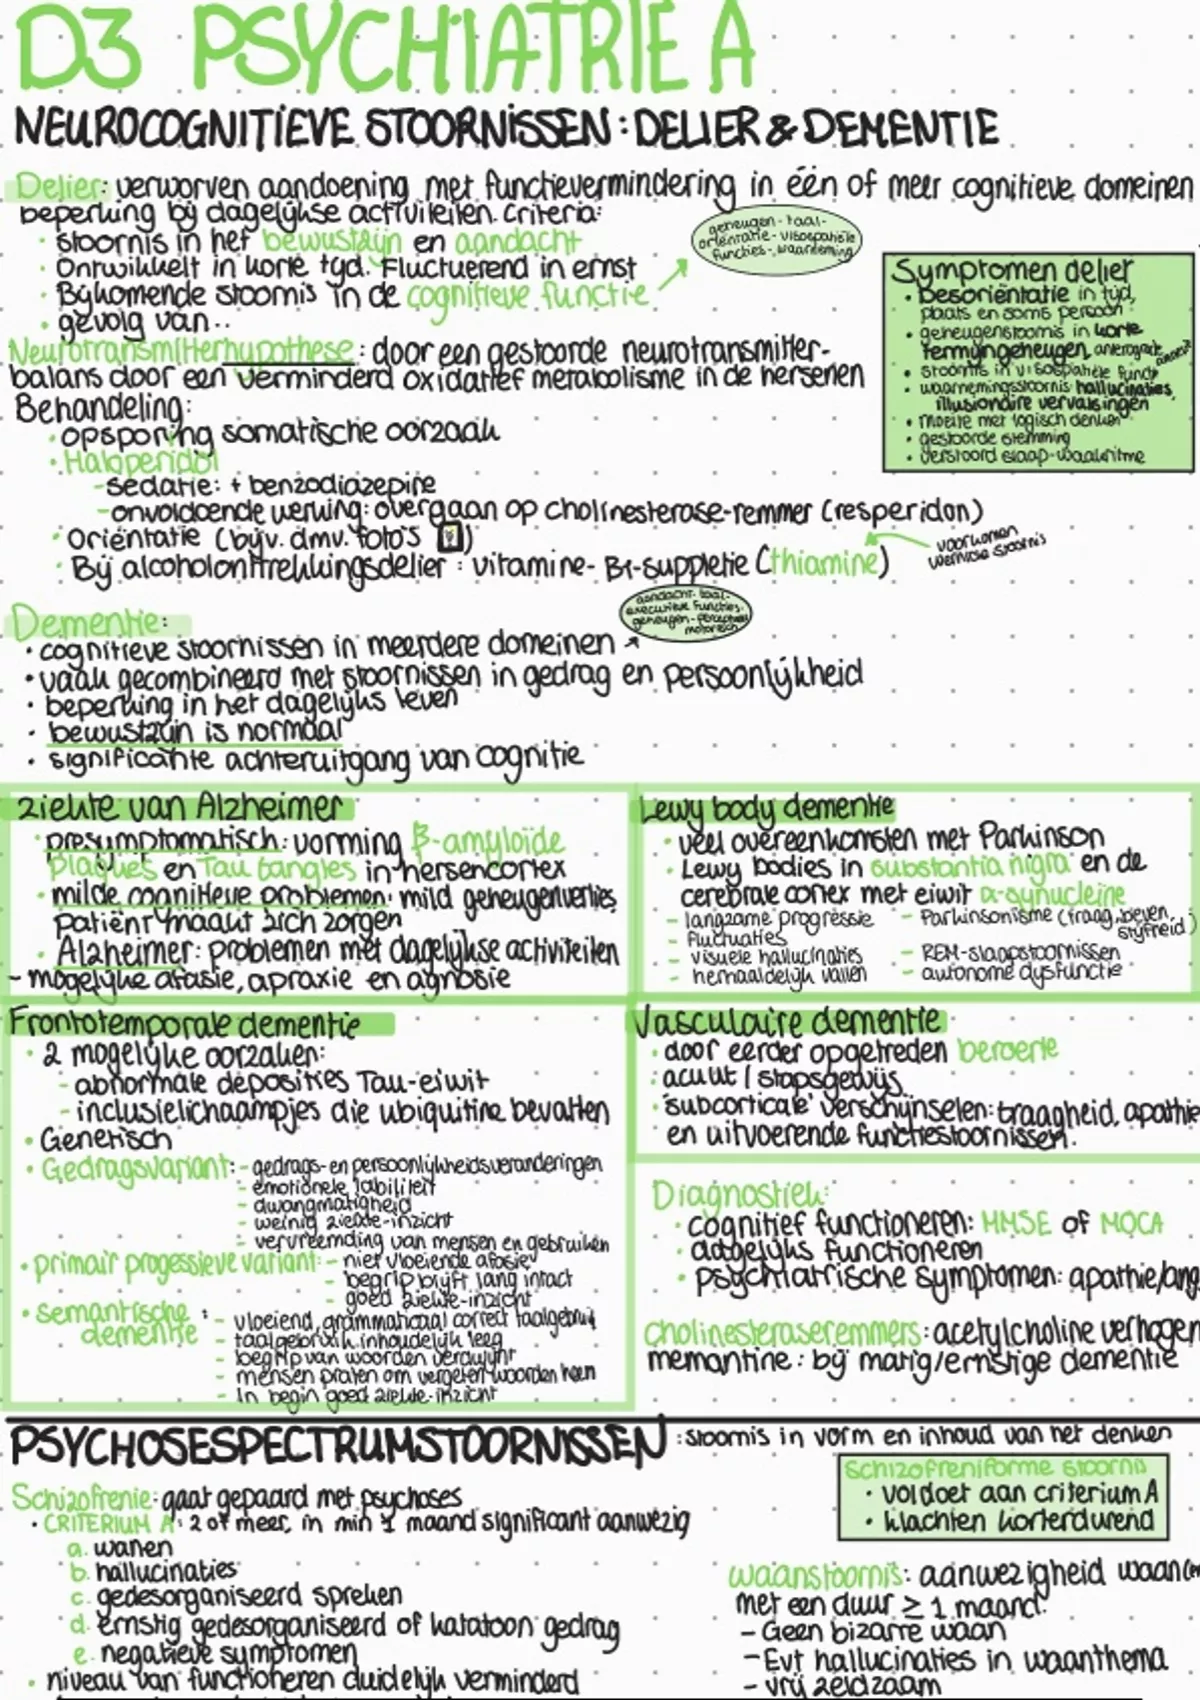 D3 PSYCHIATRIE A
NEUROCOGNITIEVE STOORNISSEN: DELIER & DEMENTIE
Delier: verworven aandoening met functievermindering in één of meer cognitieve domeinen
beperking bij dagelijkse activiteiten. Criteria:
· stoornis in het bewustzijn en aandacht
· Ontwikkelt in korte tijd. Fluctuerend in ernst
· Bijkomende stoornis in de cognitieve functie
geheugen - taal -
oriëntatie - visospatiële
functies - waarneming
· gevolg van..
Neurotransmitterhypothese: door een gestoorde neurotransmitter-
balans door een verminderd oxidatief metabolisme in de hersenen
Behandeling:
· opsporing somatische oorzaak
· Haloperidol
- sedatie: + benzodiazepine
- onvoldoende werking: overgaan op cholinesterase-remmer (resperidon)
· Oriëntatie (bijv. dmv. foto's)
· Bij alcoholonttrekkingsdelier: vitamine- B1-suppletie (thiamine)
voorkomen
wernicke stoornis
Symptomen delier
· Desoriëntatie in tijd,
plaats en soms persoon
· geheugenstoornis in korte
termijngeheugen, anterograde
· stoornis in visospatiële functie
· waarnemingsstoornis: hallucinaties,
illusionaire vervalsingen
· moeite met logisch denken
· gestoorde stemming
· verstoord slaap-waakritme
Dementie:
· cognitieve stoornissen in meerdere domeinen
aandacht - taal -
executieve functies -
geheugen - perceptueel
motorisch
· vaak gecombineerd met stoornissen in gedrag en persoonlijkheid
· beperking in het dagelijks leven
· bewustzijn is normaal
· significante achteruitgang van cognitie
ziekte van Alzheimer
· presymptomatisch: vorming β-amyloïde
plaques en Tau tangles in hersencortex
· milde cognitieve problemen: mild geheugenverlies,
patiënt maakt zich zorgen
· Alzheimer: problemen met dagelijkse activiteiten
- mogelijke afasie, apraxie en agnosie
Lewy body dementie
· veel overeenkomsten met Parkinson
· Lewy bodies in substantia nigra en de
cerebrale cortex met eiwit α-synucleine
- langzame progressie
- fluctuaties
- visuele hallucinaties
- herhaaldelijk vallen
- Parkinsonisme (traag, beven,
styfheid)
- REM-slaapstoornissen
- autonome dysfunctie
Frontotemporale dementie
· 2 mogelijke oorzaken:
- abnormale deposities Tau-eiwit
- inclusielichaampjes die ubiquitine bevatten
· Genetisch
· Gedragsvariant: - gedrags- en persoonlijkheidsveranderingen
- emotionele labiliteit
- dwangmatigheid
- weinig ziekte-inzicht
- vervreemding van mensen en gebruiken
· primair progessieve variant: - niet vloeiende afasie
- begrip blijft lang intact
- goed ziekte-inzicht
· semantische dementie: - vloeiend, grammaticaal correct taalgebruik
- taalgebruik inhoudelijk leeg
- begrip van woorden verdwijnt
- mensen praten om vergeten woorden heen
- In begin goed ziekte-inzicht
Vasculaire dementie
· door eerder opgetreden beroerte
· acuut / stapsgewijs
· 'subcorticale' verschijnselen: traagheid, apathie
en uitvoerende functiestoornissen.
Diagnostiek:
· cognitief functioneren: MMSE of MOCA
· dagelijks functioneren
· psychiatrische symptomen: apathie/ang
cholinesteraseremmers: acetylcholine verhogen
memantine: bij matig/ernstige dementie
PSYCHOSESPECTRUMSTOORNISSEN: stoornis in vorm en inhoud van het denken
Schizofrenie: gaat gepaard met psychoses
· CRITERIUM A: 2 of meer, in min 1 maand significant aanwezig
a. wanen
b. hallucinaties
c. gedesorganiseerd spreken
d. ernstig gedesorganiseerd of katatoon gedrag
e. negatieve symptomen
· niveau van functioneren duidelijk verminderd
Schizofreniforme stoornis
· voldoet aan criterium A
· klachten korterdurend
waanstoornis: aanwezigheid waan(en
met een duur ≥ 1 maand.
- Geen bizarre waan
- Evt hallucinaties in waanthema
- vrij zeldzaam